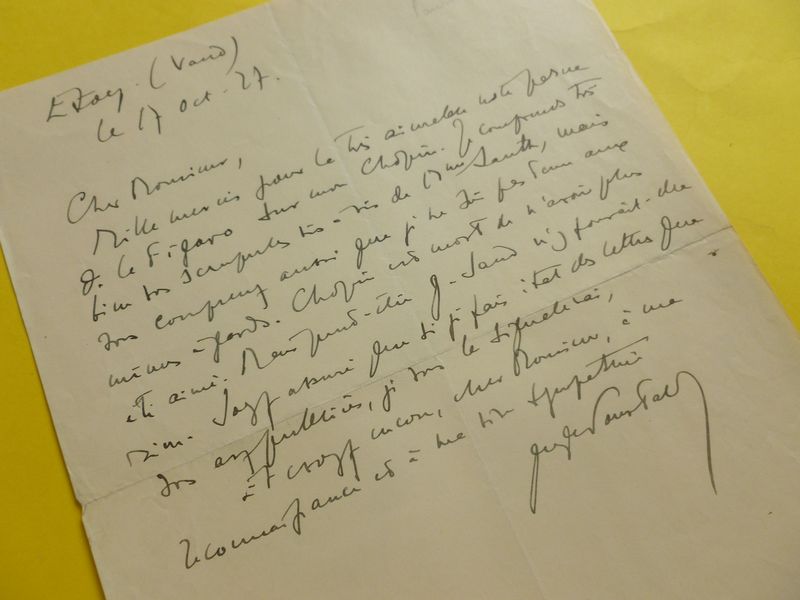 Etoy. (Vaud)
le 17 oct. 27.
Cher Monsieur,
Mille mercis pour la très aimable note parue
ds. le Figaro sur mon Chopin. Je comprends très
bien vos scrupules vis-à-vis de Mme Sand, mais
vous comprenez aussi que je ne suis pas tenu aux
mêmes égards. Chopin est mort de n'avoir plus
été aimé. Mais peut-être G. Sand n'y pouvait-elle
rien. Soyez assuré que si je fais état des lettres que
vous, je vous le signalerai,
Et croyez encore, cher Monsieur, à ma
reconnaissance et à ma vive sympathie